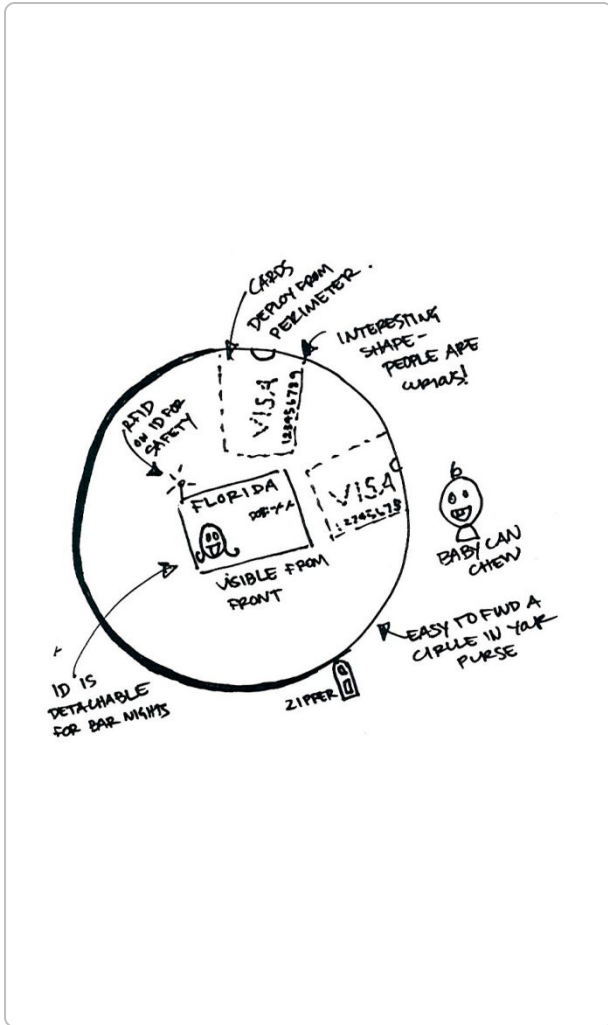 CARDS
DEPLOY FROM
PERIMETER.
INTERESTING
SHAPE-
PEOPLE ARE
CURIOUS!
RFID
ON ID FOR
SAFETY
VISA
123456789
FLORIDA
VISA
12345678
VISIBLE FROM
FRONT
BABY CAN
CHEW
EASY TO FIND A
CIRCLE IN YOUR
PURSE
ID IS
DETACHABLE
FOR BAR NIGHTS
ZIPPER